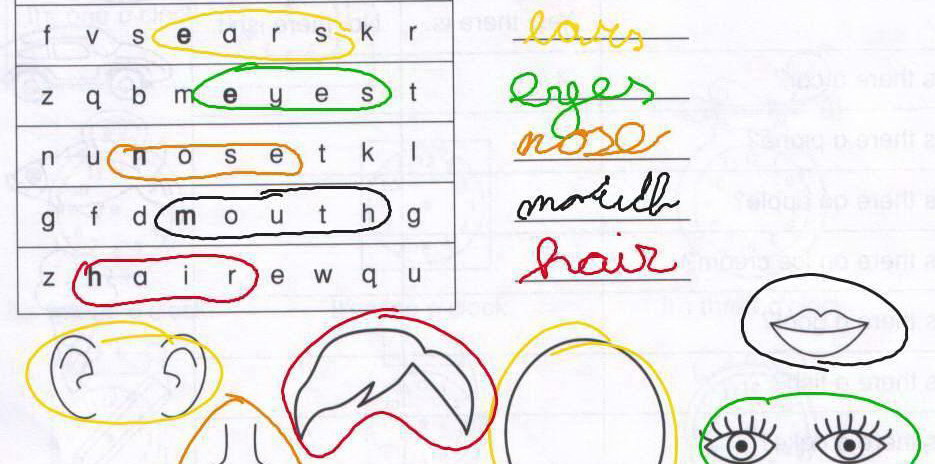 f v s e a r s k r ears
z q b m e y e s t eyes
n u n o s e t k l nose
g f d m o u t h g mouth
z h a i r e w q u hair